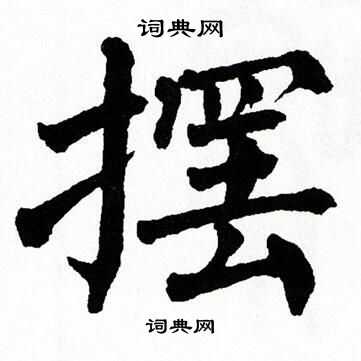 词典网
摆
词典网